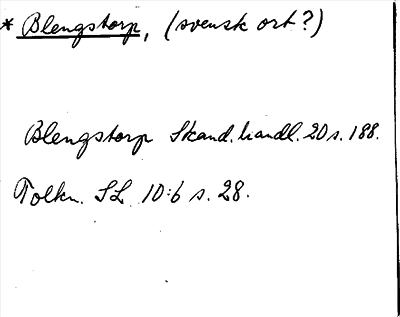 * Blengstorp, (svensk ort?)
Blengstorp Skand. handl. 20 s. 188.
Tolkn. SL 10:6 s. 28.